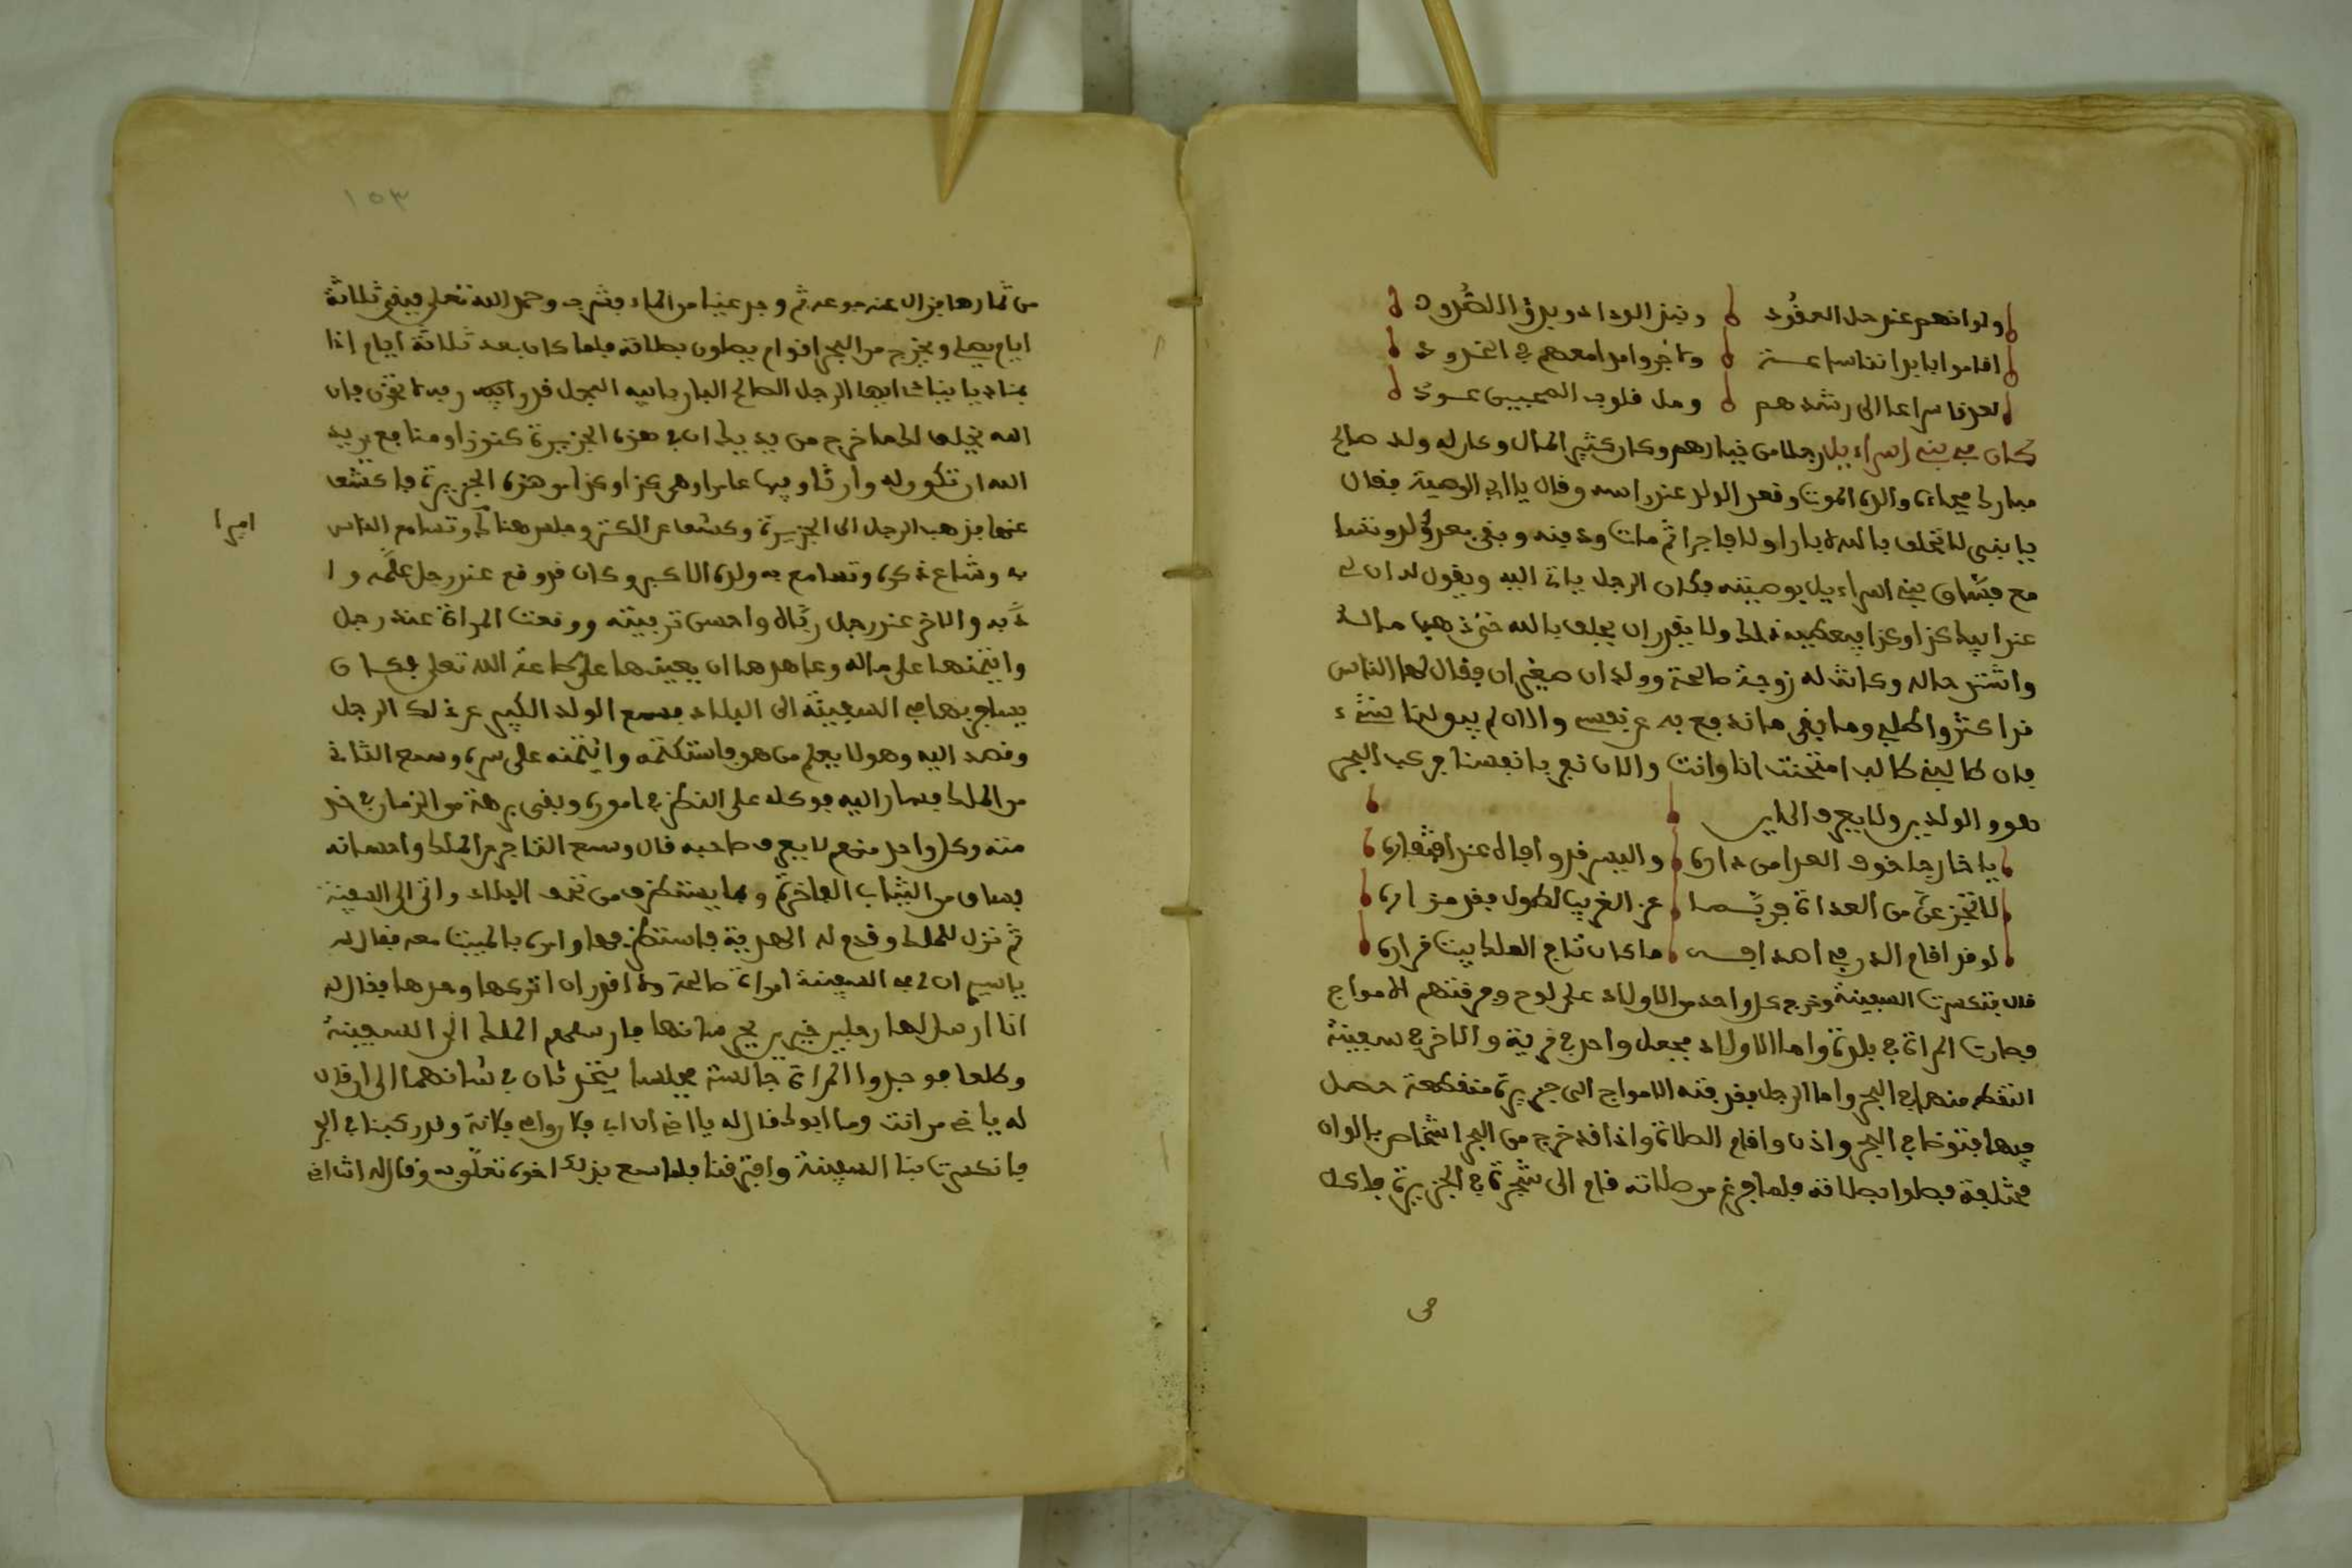 ولو انهم عند حل العقود
اقاموا بابدا
لعدنا سراعا الى رشدهم ومل قلوب المحبين
كان في بني اسراءيل رجلا من خيارهم وكان كثير المال وكان له ولد صالح
مبارك فجاءه والده الموت وقعد الولد عند راسه وقال يا ابي الوصية فقال
يا بني لا تحلف بالله بارا ولا فاجرا ثم مات ودفنه وبقي بعده
فساق بني اسراءيل بوصيته فكان الرجل ياتي اليه ويقول له ان لي
عند ابيك كذا وكذا فيعطيه ذلك ولا يقدر ان يحلف بالله حتى ذهب ماله
واشتد حاله وكانت له زوجة صالحة وولدان صغيران فقال لها الناس
قد اكثروا طلبي وما بقي ما ندفع به عن نفسي والان لم يبق لنا شيء
فان طالبني طالب امتحنت انا وانت والان نفر بانفسنا فركب البحر
هو والولدين ولا يعرف الى اين
يا خارجا خوف العدا من داره واليسر قد وافاه عند افتقاره
لا تجزعن من العداة فربما عز الغريب لطول بعد مزاره
لو قد اقام الدر في اصدافه ما كان تاج الملك بيت قراره
قال فتكسرت السفينة وخرج كل واحد من الاولاد على لوح وفرقتهم الامواج
فصارت المراة في بلدة واما الاولاد فجعل واحد في قرية والاخر في سفينة
التقطه منها في البحر واما الرجل فقذفته الامواج الى جزيرة منقطعة حصل
فيها فتوضا في البحر واذن واقام الصلاة واذا قد خرج من البحر اشخاص بالوان
مختلفة فصلوا بصلاته فلما فرغ من صلاته قام الى شجرة في الجزيرة فاكل
من
١٥٣
من ثمارها فزال عنه جوعه ثم وجد عينا من الماء فشرب وحمد الله تعلى فبقي ثلاثة
ايام يصلي ويخرج من البحر اقوام يصلون بصلاته فلما كان بعد ثلاثة ايام اذا
بمناد يا ايها الرجل الصالح البار بابيه المجل قدر ربه لا تحزن فان
الله يخلف لك ما خرج من يديك ان في هذه الجزيرة كنوزا ومنافع يريد
الله ان تكون له وارثا وفيها عامرا وهي كذا وكذا من هذه الجزيرة فاكشف
عنها فذهب الرجل الى الجزيرة وكشف عن الكنز وجلس هناك وتسامع الناس
اميرا
به وشاع ذكره وتسامع به ولده الاكبر وكان قد وقع عند رجل علمه وا
دبه والاخر عند رجل رباه واحسن تربيته ووقعت المراة عند رجل
وايتمنها على ماله وعاهدها ان يعينها على طاعة الله تعلى فكان
يسافر بها في السفينة الى البلاد فسمع الولد الكبير عن ذلك الرجل
وقصد اليه وهو لا يعلم من هو فاستكتمه وايتمنه على سره وسمع الثاني
من الملك فصار اليه فوكله على النظر في اموره وبقي برهة من الزمان في خد
متة وكل واحد منهم لا يعرف صاحبه قال وسمع التاجر من الملك واحسانه
فساق من الثياب الفاخرة وما يستظرف من تحف البلاد واتى الى السفينة
ثم نزل للملك وقدم له الهدية فاستظرفها وامره بالمبيت معه فقال له
يا سيدي ان لي في السفينة امراة صالحة ولا اقدر ان اتركها وحدها فقال له
انا ارسل لها رجلين خيرين يحرسانها فارسلهم الملك الى السفينة
وطلعا فوجدوا المراة جالسة فجلسا يتحدثان في شانهما الى ان قال
له يا اخي من انت وما ابوك فقال له يا اخي ان ابي فلان وامي فلانة وقد ركبنا في البحر
فانكسرت بنا السفينة وافترقنا فلما سمع بذلك اخوه تعلق به وقال له انت اخي